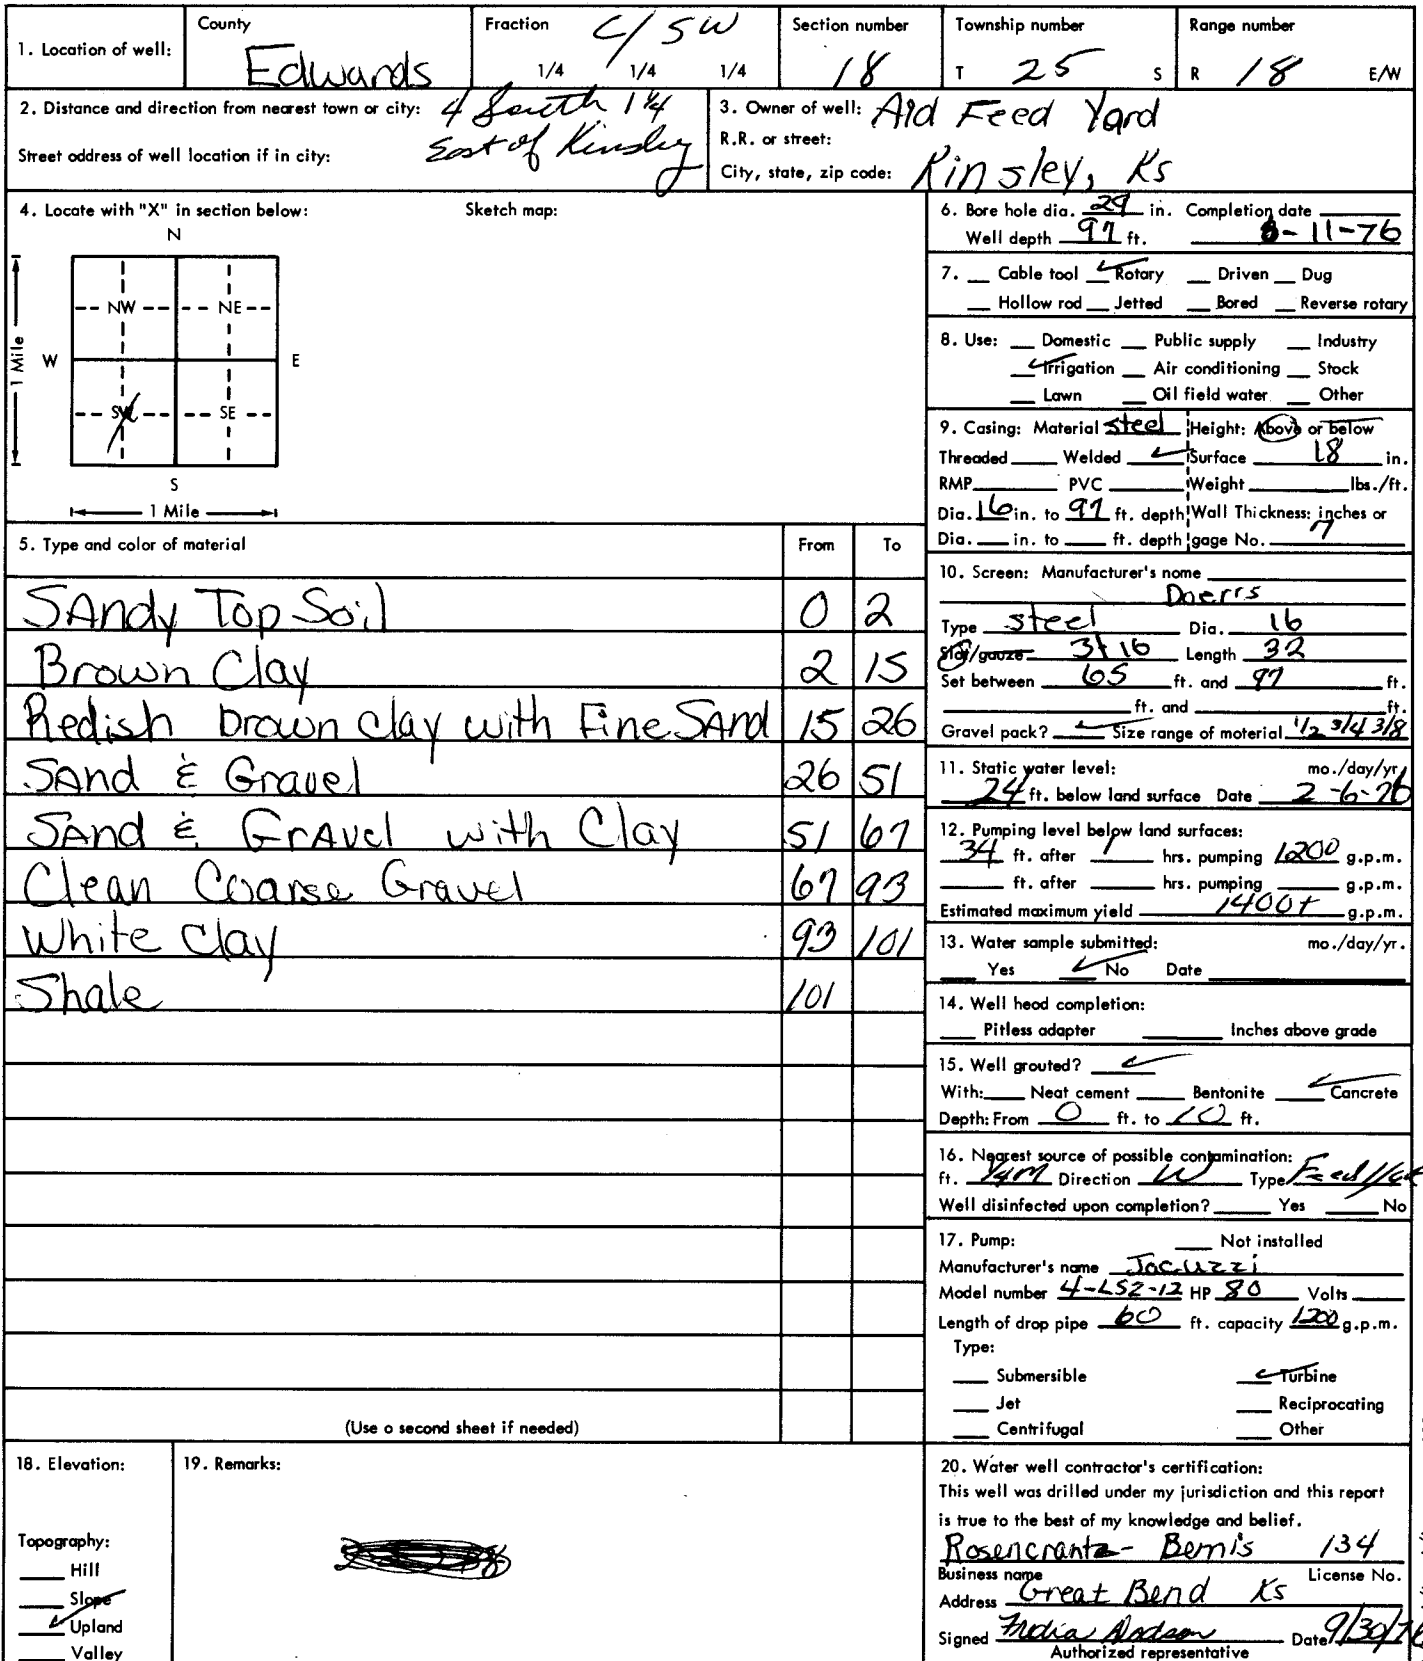 County Fraction C/SW Section number Township number Range number
1. Location of well: Edwards 1/4 1/4 1/4 18 T 25 S R 18 E/W
2. Distance and direction from nearest town or city: 4 South 1 1/4
East of Kinsley
Street address of well location if in city:
3. Owner of well: Ald Feed Yard
R.R. or street:
City, state, zip code: Kinsley, Ks
4. Locate with "X" in section below: Sketch map:
N
NW NE
W E
1 Mile
SW SE
S
1 Mile
5. Type and color of material From To
SAndy Top Soil 0 2
Brown Clay 2 15
Redish brown clay with Fine SAnd 15 26
SAnd & Gravel 26 51
SAnd & GrAvel with Clay 51 67
Clean Coarse Gravel 67 93
White Clay 93 101
Shale 101
(Use a second sheet if needed)
6. Bore hole dia. 29 in. Completion date
Well depth 97 ft. 8-11-76
7. Cable tool ✓ Rotary Driven Dug
Hollow rod Jetted Bored Reverse rotary
8. Use: Domestic Public supply Industry
✓ Irrigation Air conditioning Stock
Lawn Oil field water Other
9. Casing: Material steel Height: Above or below
Threaded Welded ✓ Surface 18 in.
RMP PVC Weight lbs./ft.
Dia. 16 in. to 97 ft. depth Wall Thickness: inches or
Dia. in. to ft. depth gage No. 7
10. Screen: Manufacturer's name
Doerrs
Type steel Dia. 16
Slot/gauze 3/16 Length 32
Set between 65 ft. and 97 ft.
ft. and ft.
Gravel pack? ✓ Size range of material 1/2 3/4 3/8
11. Static water level: mo./day/yr.
24 ft. below land surface Date 2-6-76
12. Pumping level below land surfaces:
34 ft. after 1 hrs. pumping 1200 g.p.m.
ft. after hrs. pumping g.p.m.
Estimated maximum yield 1400+ g.p.m.
13. Water sample submitted: mo./day/yr.
Yes ✓ No Date
14. Well head completion:
Pitless adapter Inches above grade
15. Well grouted? ✓
With: Neat cement Bentonite ✓ Concrete
Depth: From 0 ft. to 10 ft.
16. Nearest source of possible contamination:
ft. 1/4 m Direction W Type Feed
Well disinfected upon completion? Yes No
17. Pump: Not installed
Manufacturer's name Jacuzzi
Model number 4-LS2-12 HP 80 Volts
Length of drop pipe 60 ft. capacity 1200 g.p.m.
Type:
Submersible ✓ Turbine
Jet Reciprocating
Centrifugal Other
18. Elevation: 19. Remarks:
Topography:
Hill
Slope
✓ Upland
Valley
20. Water well contractor's certification:
This well was drilled under my jurisdiction and this report
is true to the best of my knowledge and belief.
Rosencrantz-Bemis 134
Business name License No.
Address Great Bend Ks
Signed Date 9/30/76
Authorized representative